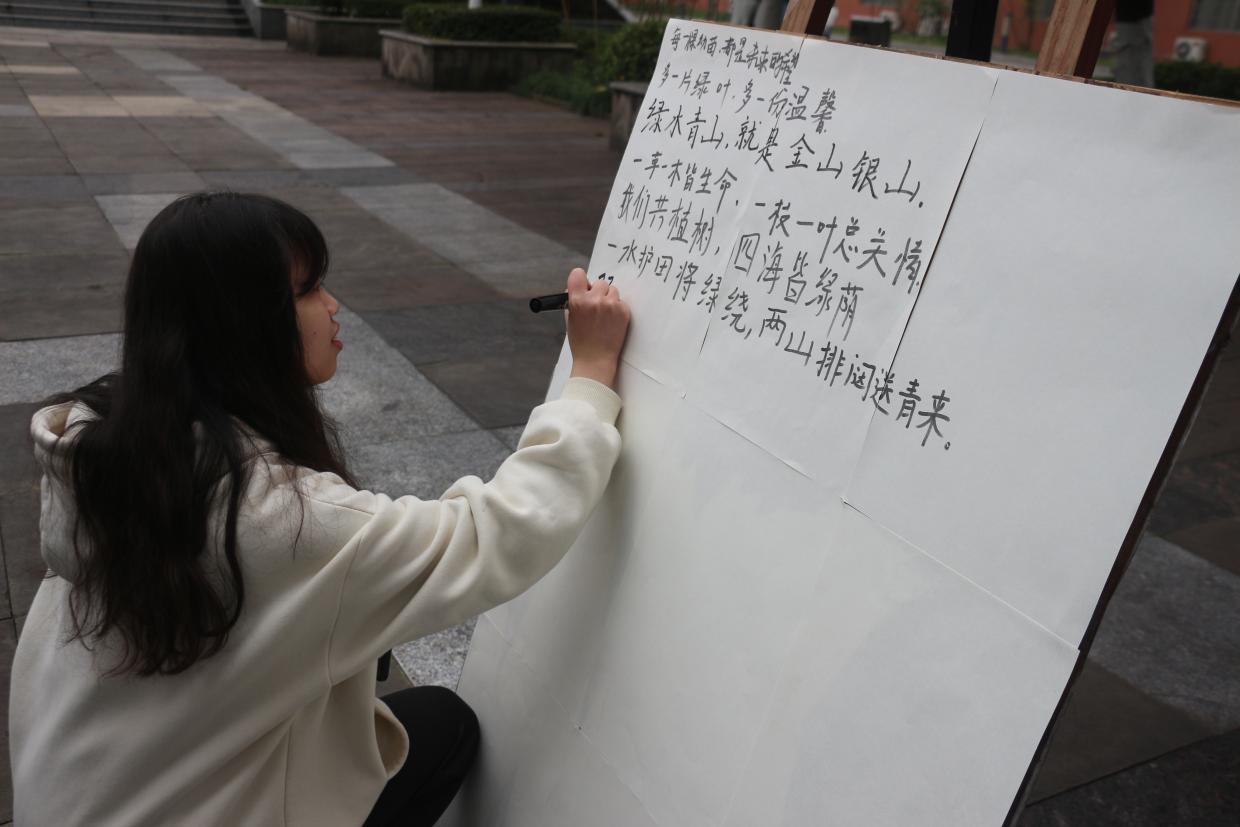 每一棵幼苗,都是未来的希望
多一片绿叶,多一份温馨
绿水青山,就是金山银山.
一草一木皆生命,一枝一叶总关情
我们共植树,四海皆绿荫
一水护田将绿绕,两山排闼送青来。